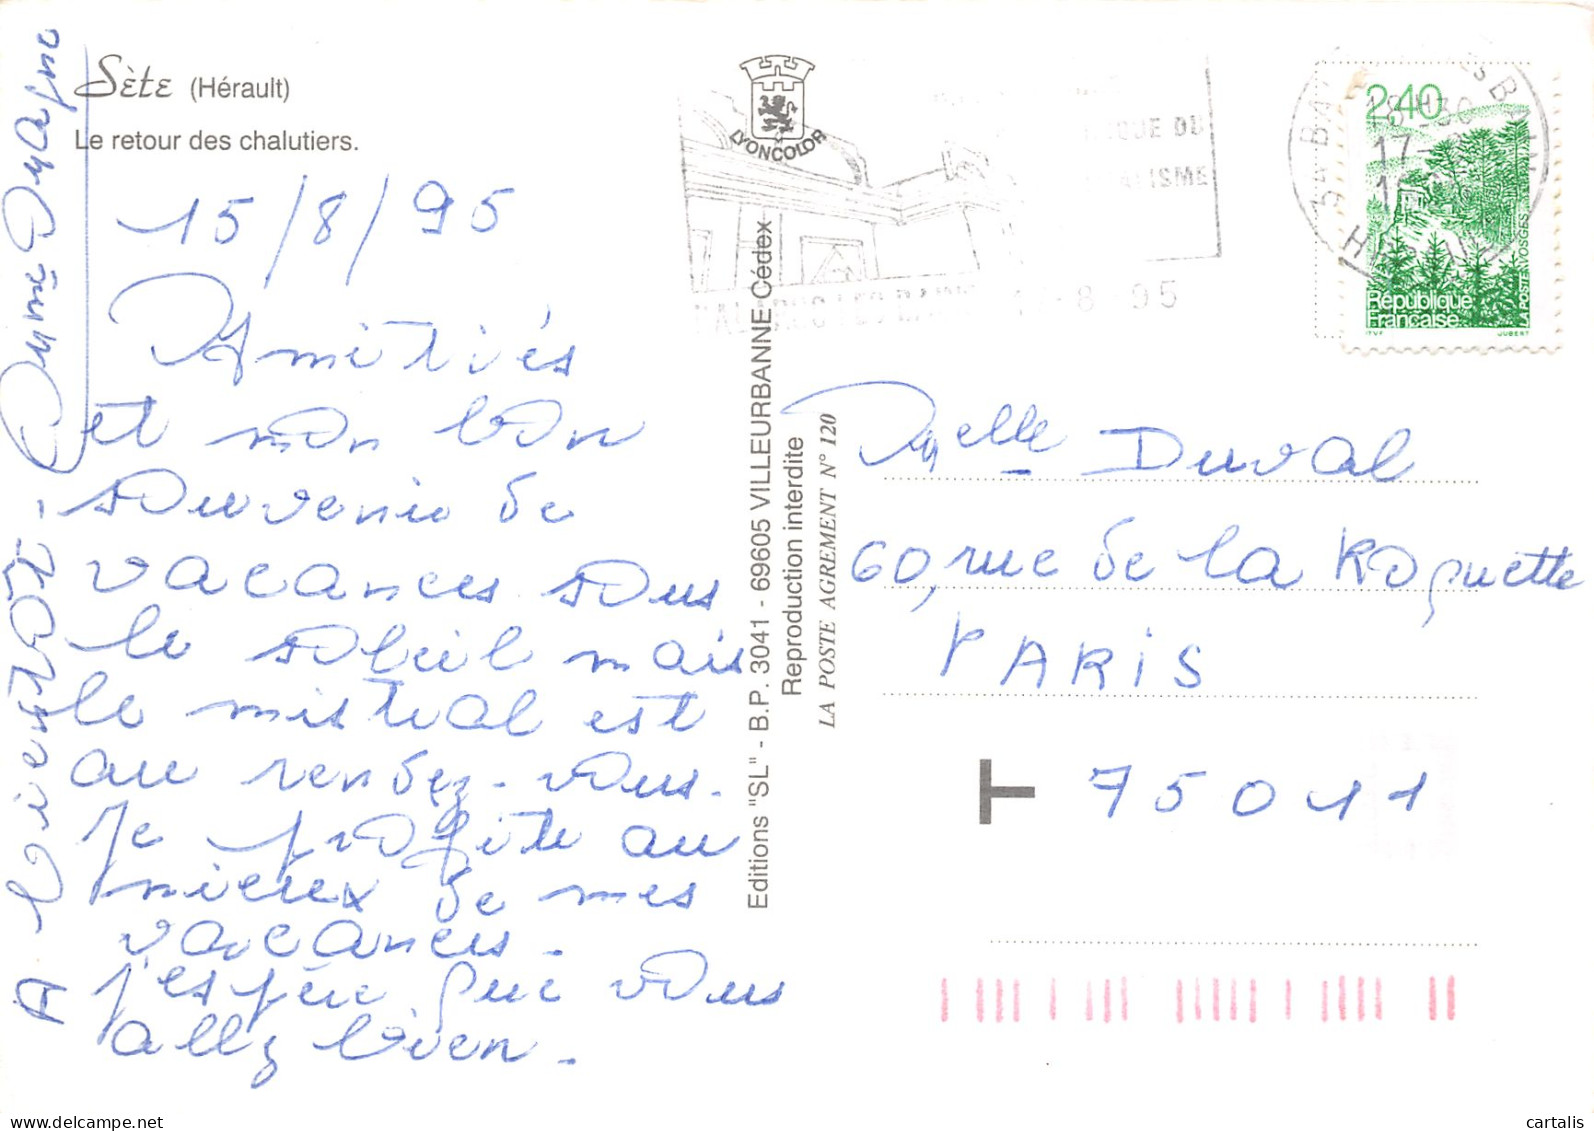 Sète (Hérault)
Le retour des chalutiers.
15/8/95
Amitiés
et mon bon
souvenir de
vacances sous
le soleil mais
le mistral est
au rendez-vous.
Je profite au
mieux de mes
vacances.
J'espère que vous
allez bien.
A bientôt -
LYONCOLOR
Editions "SL" - B.P. 3041 - 69605 VILLEURBANNE Cédex
Reproduction interdite
LA POSTE AGREMENT N° 120
QUE DU
ALISME
8 95
18 H30
17-
2,40
LA POSTE VOSGES
République
Française
ITVF JUBERT
Melle Duval
60, rue de la Roquette
PARIS
T 75011
delcampe.net
cartalis